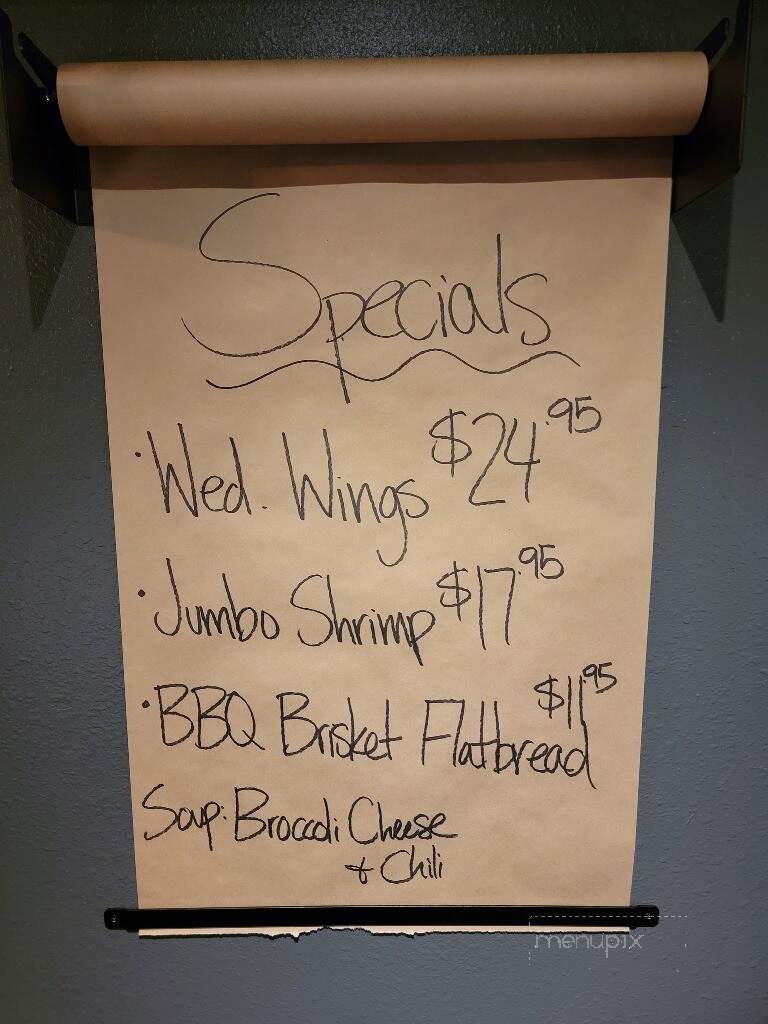 Specials
· Wed. Wings $24.95
· Jumbo Shrimp $17.95
· BBQ Brisket Flatbread $11.95
Soup: Broccoli Cheese
& Chili
menupix